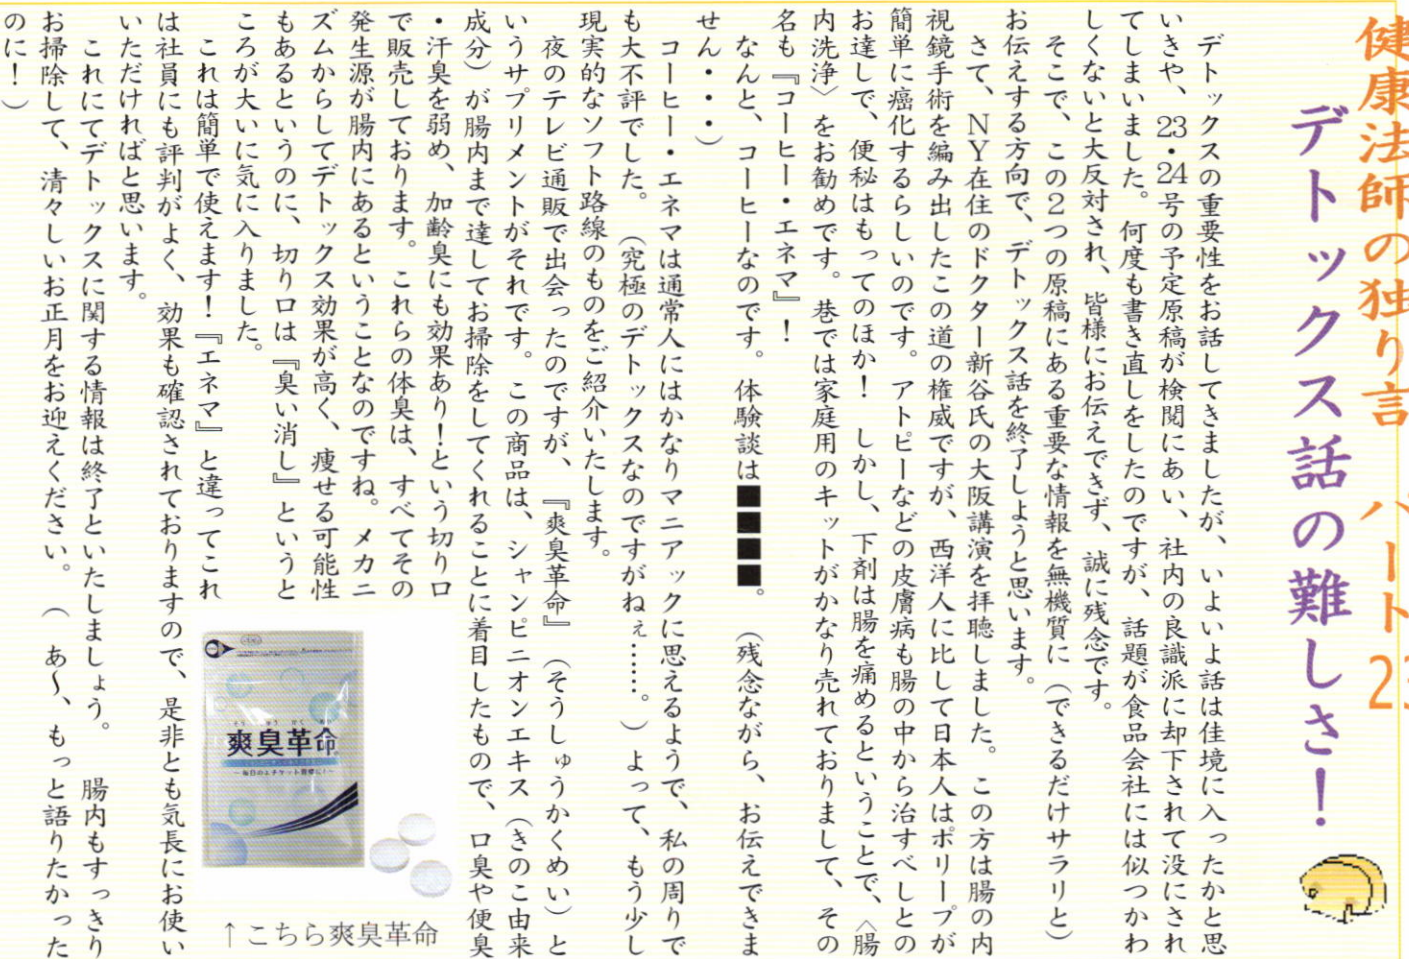 健康法師の独り言 パート23
デトックス話の難しさ！
デトックスの重要性をお話してきましたが、いよいよ話は佳境に入ったかと思
いきや、23・24号の予定原稿が検閲にあい、社内の良識派に却下されて没にされ
てしまいました。何度も書き直しをしたのですが、話題が食品会社には似つかわ
しくないと大反対され、皆様にお伝えできず、誠に残念です。
そこで、この2つの原稿にある重要な情報を無機質に（できるだけサラリと）
お伝えする方向で、デトックス話を終了しようと思います。
さて、NY在住のドクター新谷氏の大阪講演を拝聴しました。この方は腸の内
視鏡手術を編み出したこの道の権威ですが、西洋人に比して日本人はポリープが
簡単に癌化するらしいのです。アトピーなどの皮膚病も腸の中から治すべしとの
お達しで、便秘はもってのほか！しかし、下剤は腸を痛めるということで、〈腸
内洗浄〉をお勧めです。巷では家庭用のキットがかなり売れておりまして、その
名も『コーヒー・エネマ』！
なんと、コーヒーなのです。体験談は■■■■。（残念ながら、お伝えできま
せん・・・）
コーヒー・エネマは通常人にはかなりマニアックに思えるようで、私の周りで
も大不評でした。（究極のデトックスなのですがねぇ……。）よって、もう少し
現実的なソフト路線のものをご紹介いたします。
夜のテレビ通販で出会ったのですが、『爽臭革命』（そうしゅうかくめい）と
いうサプリメントがそれです。この商品は、シャンピニオンエキス（きのこ由来
成分）が腸内まで達してお掃除をしてくれることに着目したもので、口臭や便臭
・汗臭を弱め、加齢臭にも効果あり！という切り口
で販売しております。これらの体臭は、すべてその
発生源が腸内にあるということなのですね。メカニ
ズムからしてデトックス効果が高く、痩せる可能性
もあるというのに、切り口は『臭い消し』というと
ころが大いに気に入りました。
これは簡単で使えます！『エネマ』と違ってこれ
は社員にも評判がよく、効果も確認されておりますので、是非とも気長にお使い
いただければと思います。
これにてデトックスに関する情報は終了といたしましょう。腸内もすっきり
お掃除して、清々しいお正月をお迎えください。（あ〜、もっと語りたかった
のに！）
そうしゅうかくめい
爽臭革命
―毎日のエチケット習慣に！―
↑こちら爽臭革命